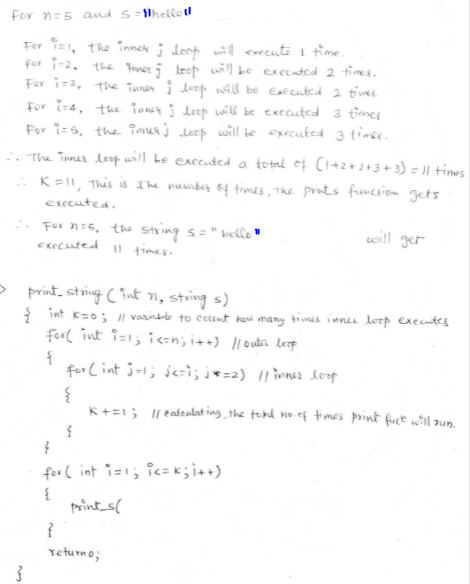 For n=5 and s="hello"
For i=1, the inner j loop will execute 1 time.
For i=2, the inner j loop will be executed 2 times.
For i=3, the inner j loop will be executed 2 times
For i=4, the inner j loop will be executed 3 times
For i=5, the inner j loop will be executed 3 times.
∴ The inner loop will be executed a total of (1+2+2+3+3)=11 times
∴ K=11, This is The number of times, the prints function gets
executed.
∴ For n=5, the string s="hello" will get
executed 11 times.
> print_string (int n, string s)
{ int K=0; // variable to count how many times inner loop executes
for( int i=1; i<=n; i++) // outer loop
{
for( int j=1; j<=i; j*=2) // inner loop
{
K+=1; // calculating the total no. of times print fuct will run.
}
}
for( int i=1; i<=K; i++)
{
print_s(
}
return 0;
}